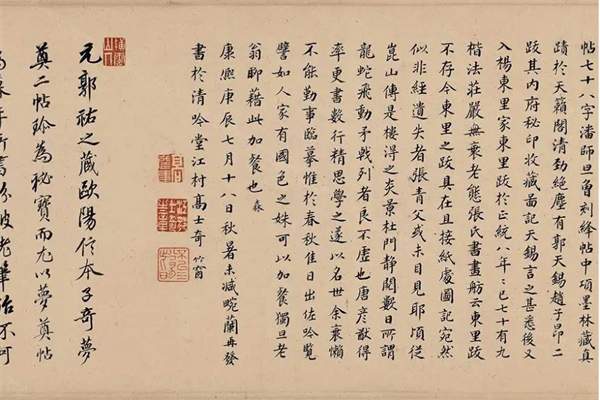 帖七十八字潘師旦曾刻絳帖中項墨林藏真
蹟於天籟閣清勁絕塵有郭天錫趙子昂二
跋其内府秘印收藏啚記天錫言之甚悉後又
入楊東里家東里跋於正統八年:已七十有九
楷法莊嚴無衰老態張氏書畫舫云東里跋
不存今東里之跋具在且接紙處圖記宛然
似非經遺失者張青父或未目見耶頃從
崑山傳是樓得之炎景杜門靜閱數日所謂
龍蛇飛動矛戟列者良不虛也唐彥猷得
率更書數行精思學之遂以名世余衰懶
不能勤事臨摹惟於春秋佳日出佐吟覽
譬如人家有國色之姝可以加餐獨旦老
翁聊藉此加餐也
康熙庚辰七月十八日秋暑未減畹蘭再發
書於清吟堂江村高士奇 竹窗
元郭祐之藏歐陽信本子奇夢
奠二帖珍為秘寶而尤以夢奠帖
年所書分披老筆治不可